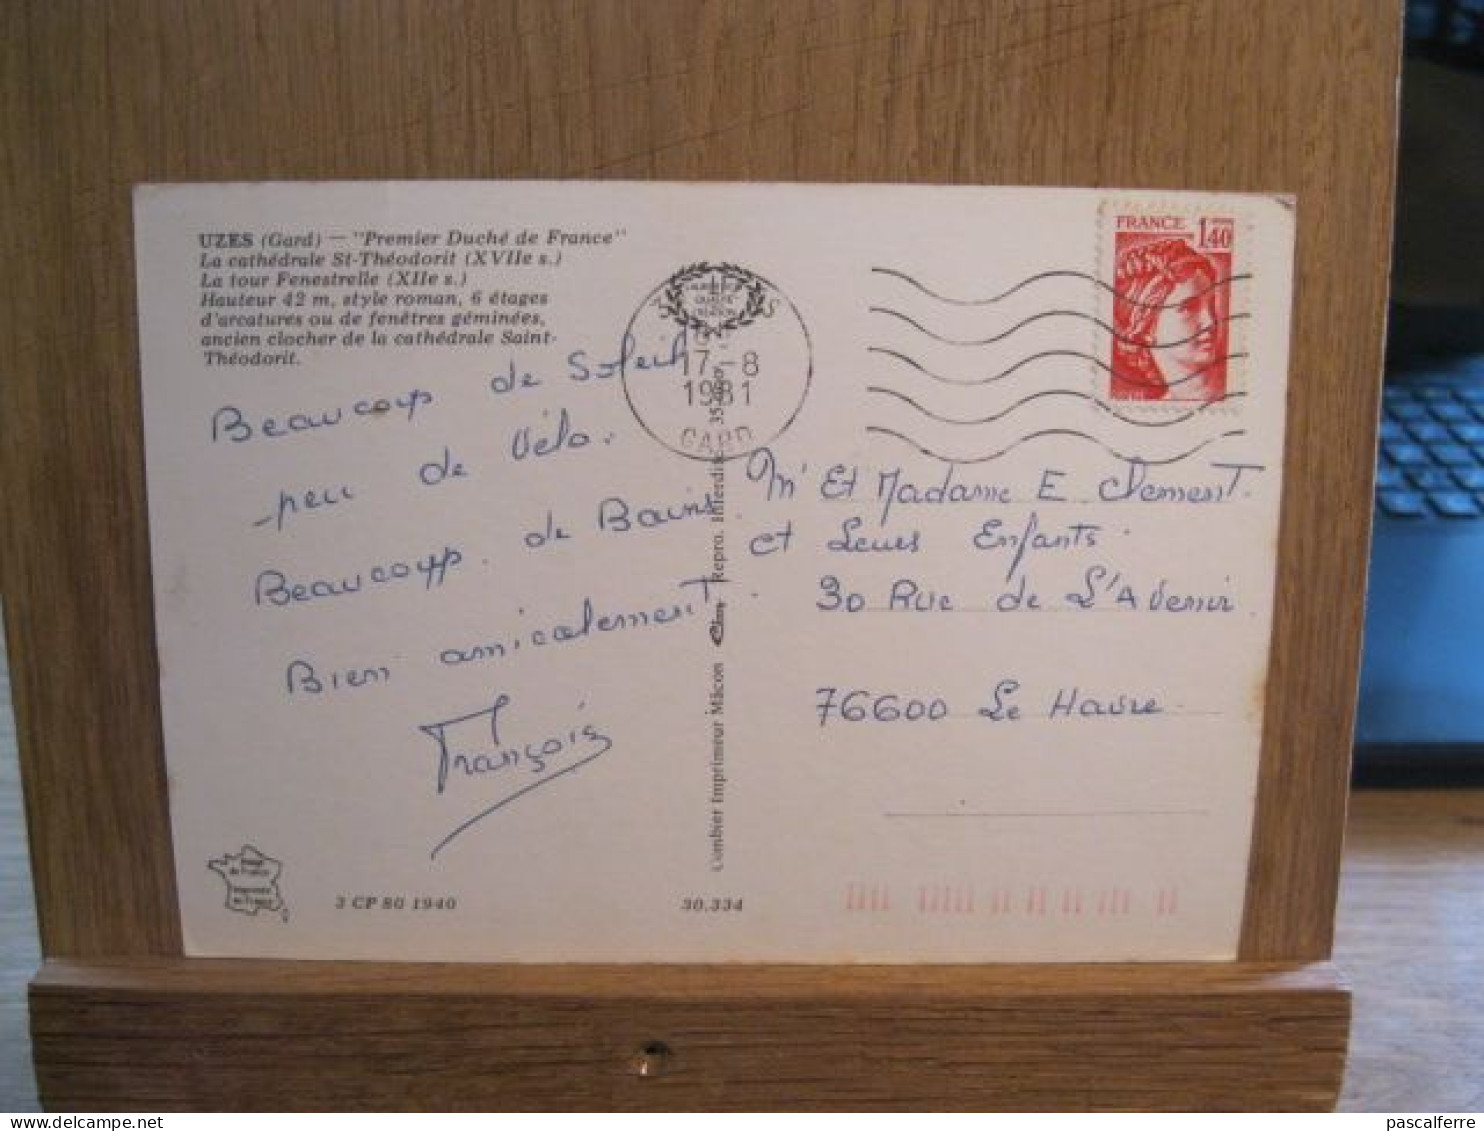 UZES (Gard) — "Premier Duché de France"
La cathédrale St-Théodorit (XVIIe s.)
La tour Fenestrelle (XIIe s.)
Hauteur 42 m, style roman, 6 étages
d'arcatures ou de fenêtres géminées,
ancien clocher de la cathédrale Saint-
Théodorit.
Beaucoup de Soleil
peu de Vélo.
Beaucoup de Bains
Bien amicalement
François
3 CP 80 1940
30.334
Combier Imprimeur Mâcon Cim Repro. Interdite
17-8
1981
GARD
FRANCE 1,40
Mr Et Madame E Clement.
et Leurs Enfants.
30 Rue de L'Avenir
76600 Le Havre
pascalferre